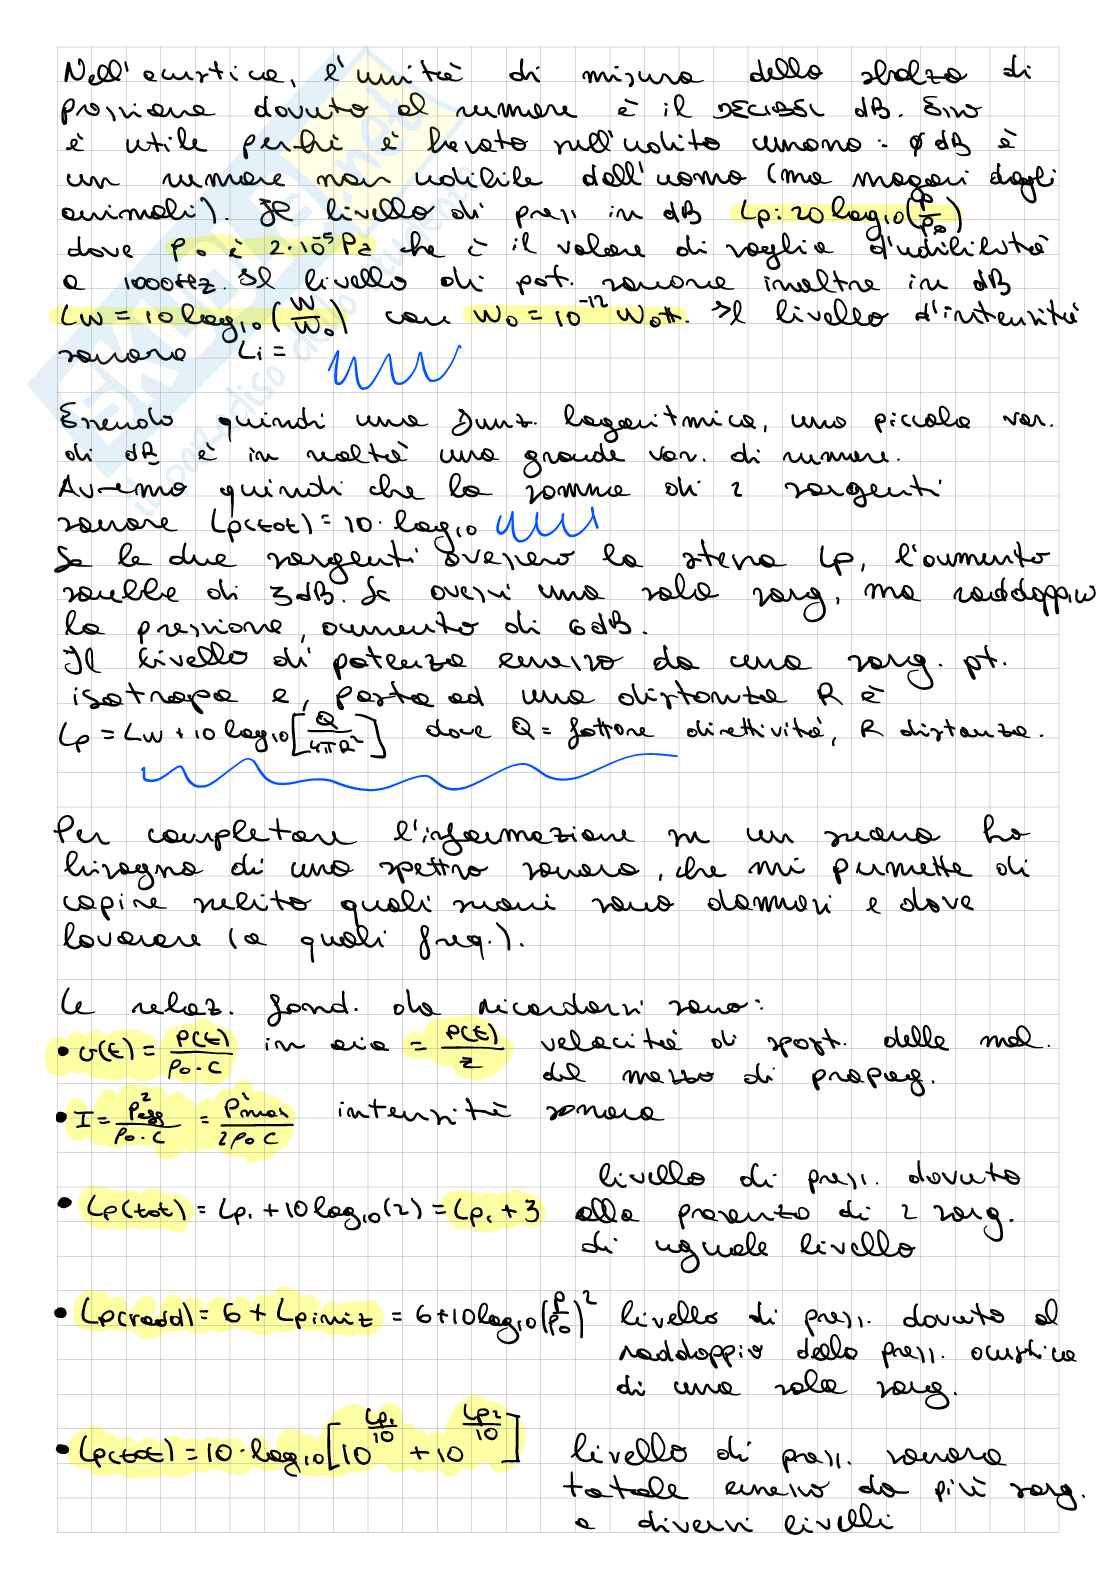 Nell'acustica, l'unità di misura dello sbalzo di
pressione dovuto al rumore è il DECIBEL dB. Esso
è utile perché è basato sull'udito umano: φ dB è
un rumore non udibile dall'uomo (ma magari dagli
animali). Il livello di press in dB Lp: 20 log10(p/p0)
dove p0 è 2·10⁻⁵ Pa che è il valore di soglia d'udibilità
a 1000Hz. Il livello di pot. sonora inoltre in dB
LW = 10 log10 (W/W0) con W0 = 10⁻¹² Watt. Il livello d'intensità
sonora Li =
Essendo quindi una funz. logaritmica, una piccola var.
di dB è in realtà una grande var. di rumore.
Avremo quindi che la somma di 2 sorgenti
sonore Lp(tot) = 10 · log10
Se le due sorgenti avessero la stessa Lp, l'aumento
sarebbe di 3dB. Se avessi una sola sorg, ma raddoppio
la pressione, aumento di 6dB.
Il livello di potenza emesso da una sorg. pt.
isotropa e, posta ad una distanza R è
Lp = LW + 10 log10 [Q/4πR²] dove Q = fattore direttività, R distanza.
Per completare l'informazione su un suono ho
bisogno di uno spettro sonoro, che mi permette di
capire subito quali suoni sono dannosi e dove
lavorare (a quali freq.).
Le relaz. fond. da ricordarsi sono:
• v(t) = p(t)/ρ0·c in aia = p(t)/z velocità di spost. delle mol.
del mezzo di propag.
• I = p²eff/ρ0·c = p²max/2ρ0c intensità sonora
livello di press. dovuto
• Lp(tot) = Lp1 + 10 log10(2) = Lp1 + 3 alla presenza di 2 sorg.
di uguale livello
• Lp(radd) = 6 + Lpiniz = 6+10log10(p/p0)² livello di press. dovuto al
raddoppio della press. acustica
di una sola sorg.
• Lp(tot) = 10·log10[10^(Lp1/10) + 10^(Lp2/10)] livello di press. sonora
totale emesso da più sorg.
a diversi livelli